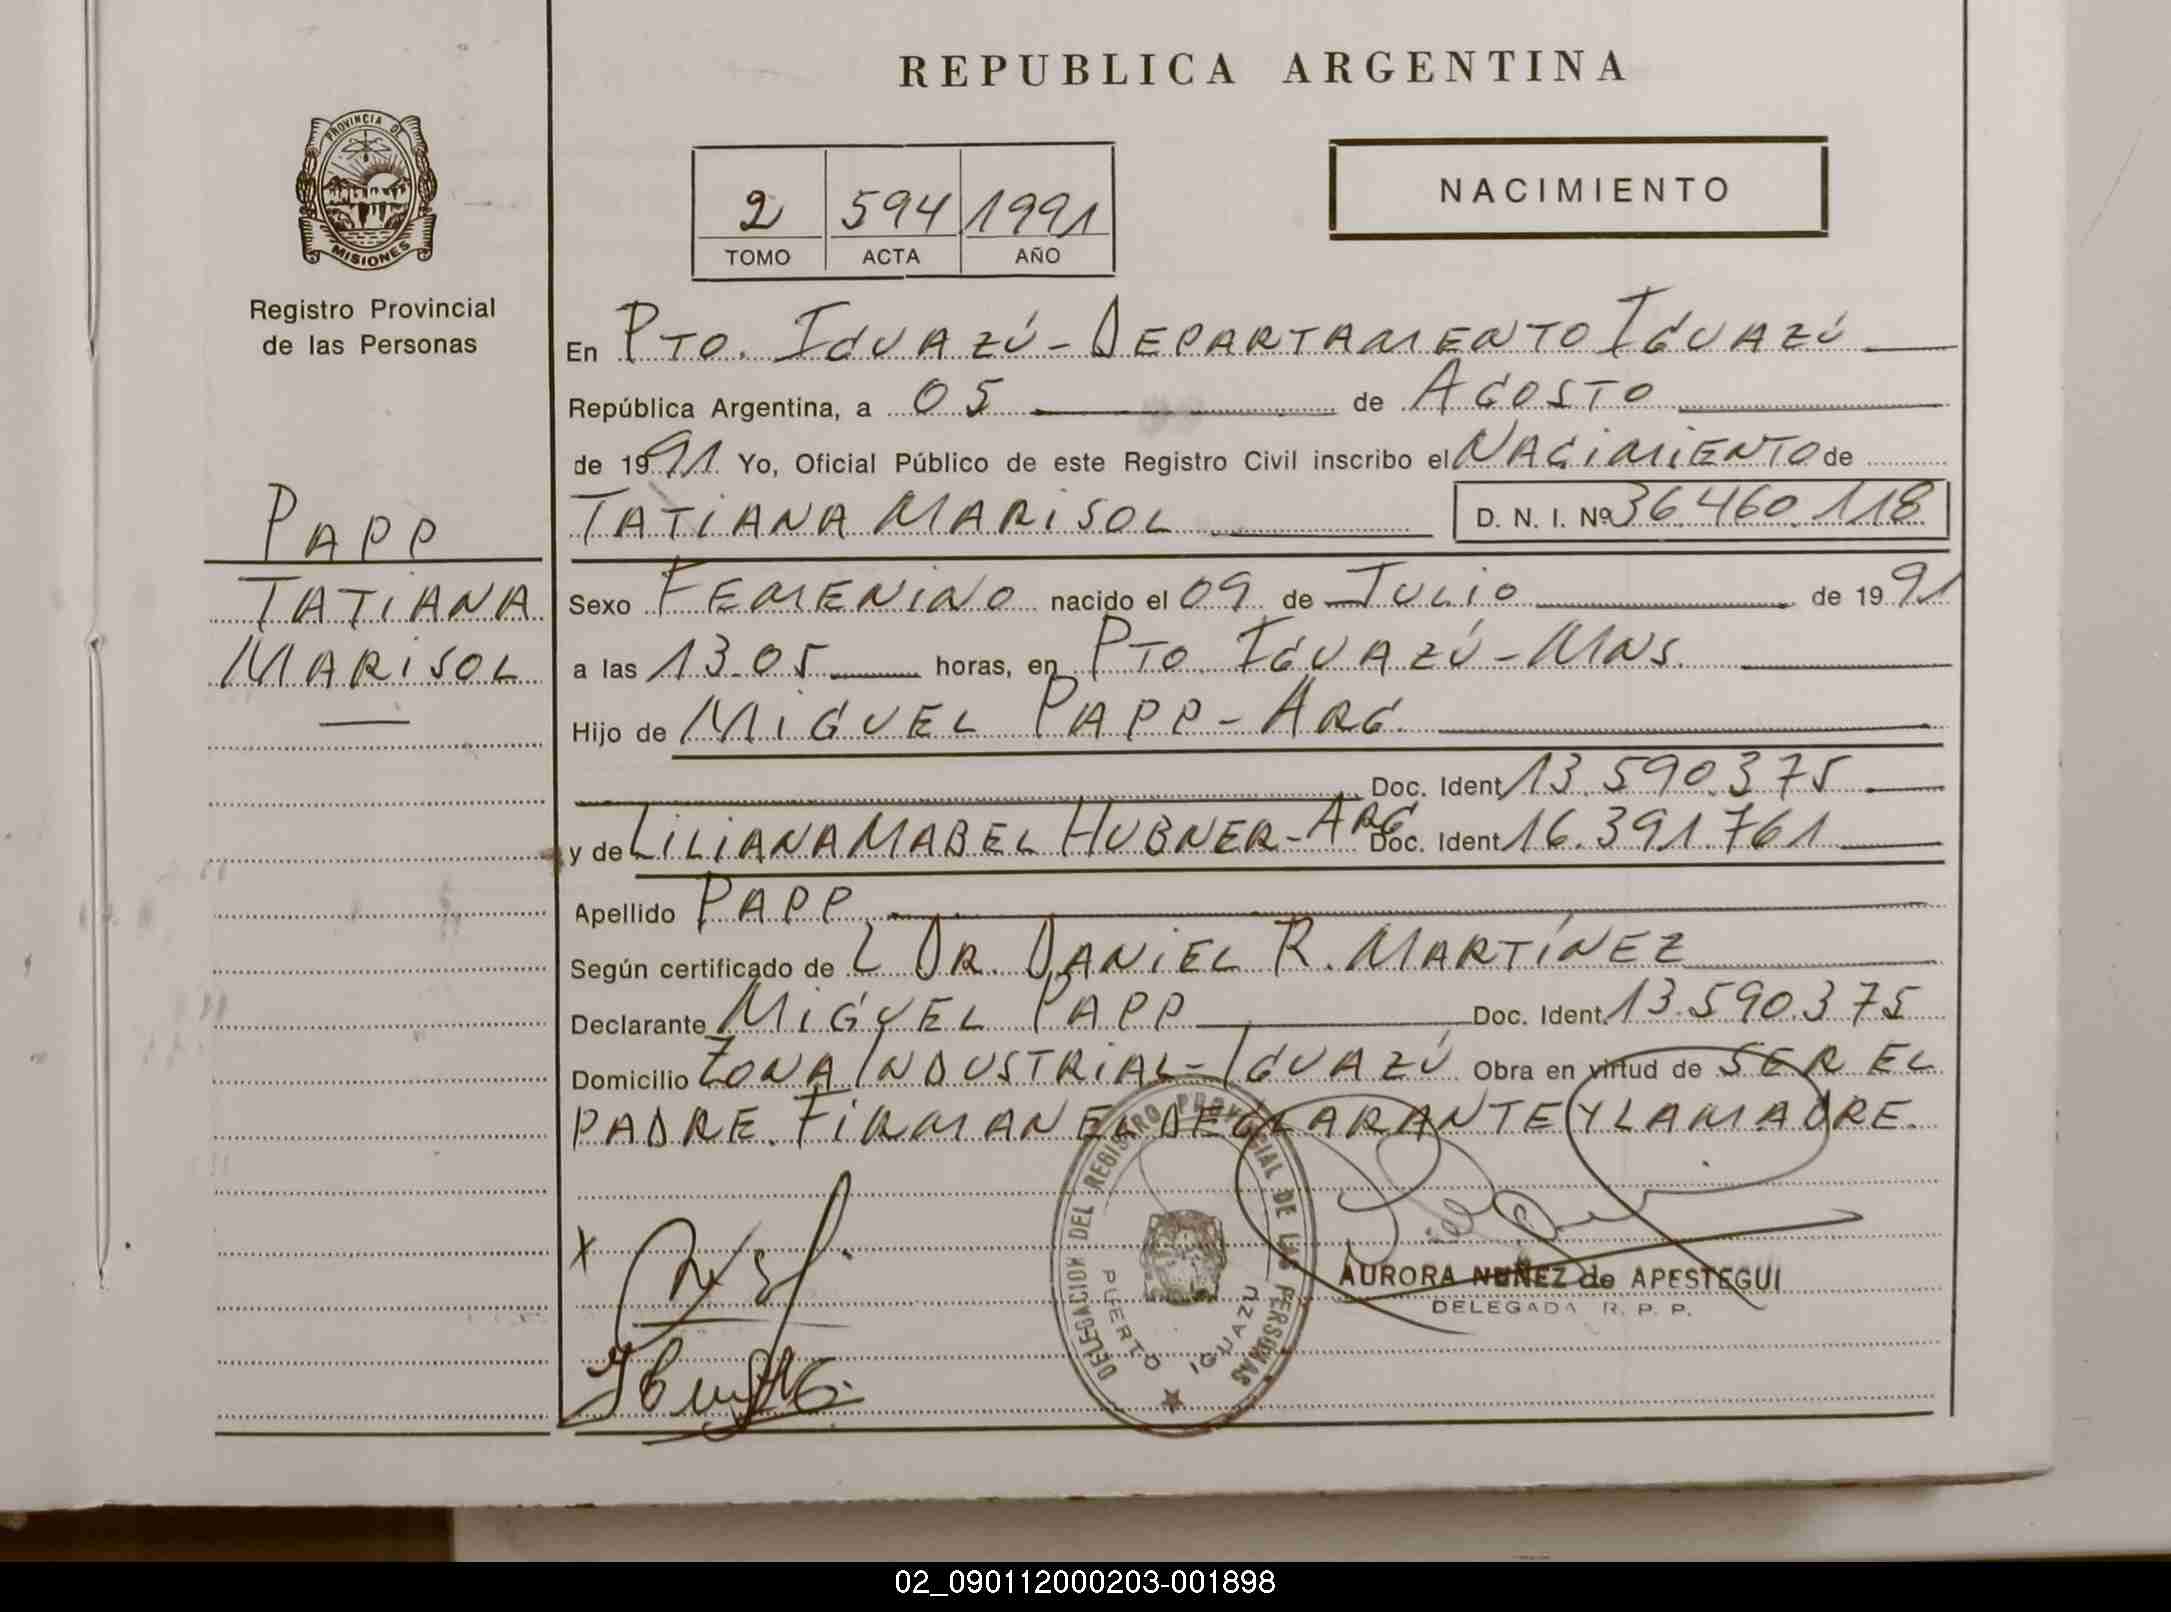 REPUBLICA ARGENTINA
PROVINCIA DE
MISIONES
Registro Provincial
de las Personas
2 594 1991
TOMO ACTA AÑO
NACIMIENTO
PAPP
TATIANA
MARISOL
En PTO. IGUAZÚ - DEPARTAMENTO IGUAZÚ
República Argentina, a 05 de AGOSTO
de 1991 Yo, Oficial Público de este Registro Civil inscribo el NACIMIENTO de
TATIANA MARISOL D. N. I. Nº 36.460.118
Sexo FEMENINO nacido el 09 de JULIO de 1991
a las 13.05 horas, en PTO. IGUAZÚ - MNS.
Hijo de MIGUEL PAPP - ARG.
Doc. Ident. 13.590.375
y de LILIANA MABEL HUBNER - ARG Doc. Ident. 16.391.761
Apellido PAPP
Según certificado de L DR. DANIEL R. MARTÍNEZ
Declarante MIGUEL PAPP Doc. Ident. 13.590.375
Domicilio ZONA INDUSTRIAL - IGUAZÚ Obra en virtud de SER EL
PADRE. FIRMAN EL DECLARANTE Y LA MADRE.
X
DELEGACION DEL REGISTRO PROVINCIAL DE LAS PERSONAS
PUERTO IGUAZU
AURORA NUÑEZ de APESTEGUI
DELEGADA R. P. P.
02_090112000203-001898